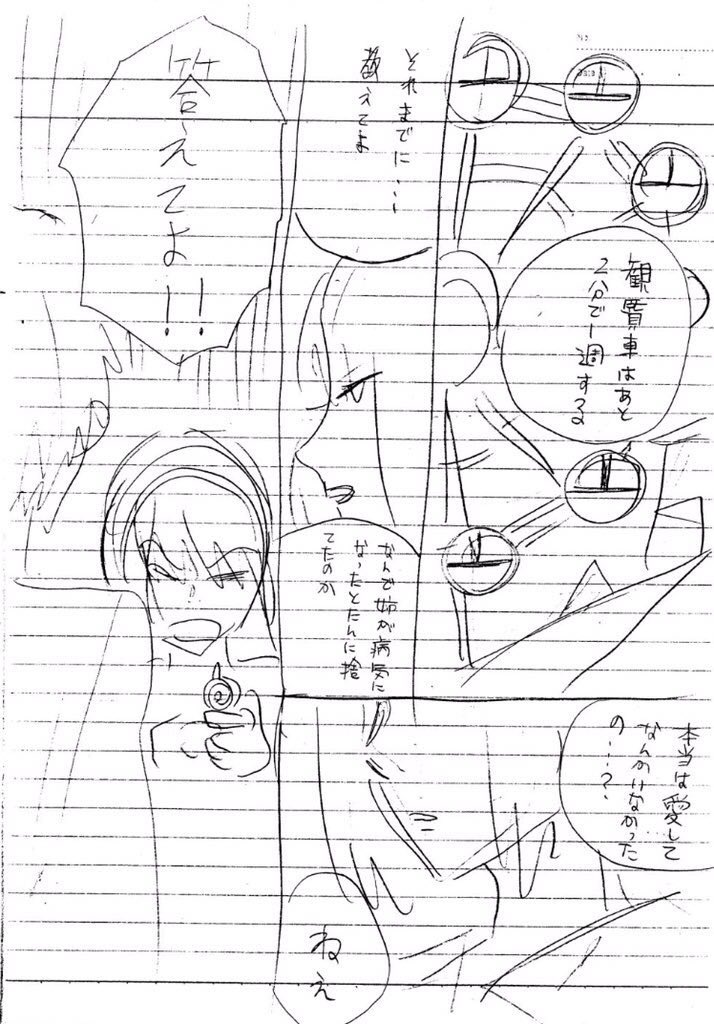 観覧車はあと
2分で一週する
それまでに…
教えてよ
なんで姉が病気に
なったとたんに捨
てたのか
本当は愛して
なんかいなかった
の…?
ねえ
答えてよ!!